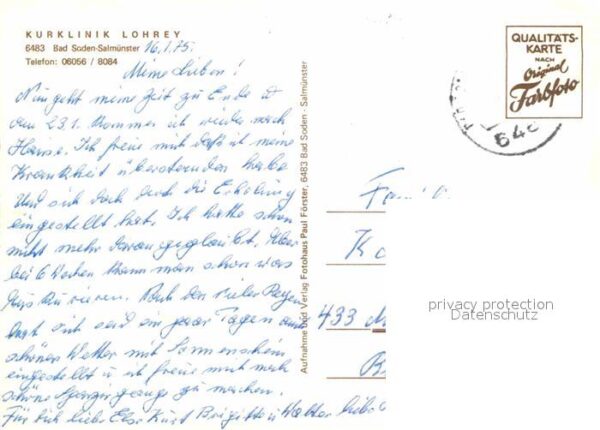 KURKLINIK LOHREY
6483 Bad Soden-Salmünster 16.1.75.
Telefon: 06056 / 8084
Meine Lieben!
Nun geht meine Zeit zu Ende u
am 23.1. komme ich wieder nach
Hause. Ich freue mich daß ich meine
Krankheit überstanden habe
und sich doch noch die Erholung
eingestellt hat. Ich hatte schon
nicht mehr daran geglaubt. Aber
bei 6 Wochen kann man schon was
Nach den vielen Regen
hat sich seid ein paar Tagen auch
schönes Wetter mit Sonnenschein
eingestellt u ich freue mich noch
schöne Spaziergänge zu machen.
Für Dich liebe Else Kurt Brigitte u Walter liebe
Aufnahme und Verlag Fotohaus Paul Förster, 6483 Bad Soden - Salmünster
QUALITÄTS-
KARTE
NACH
Original
Farbfoto
648
Fam
K
433 M
privacy protection
Datenschutz